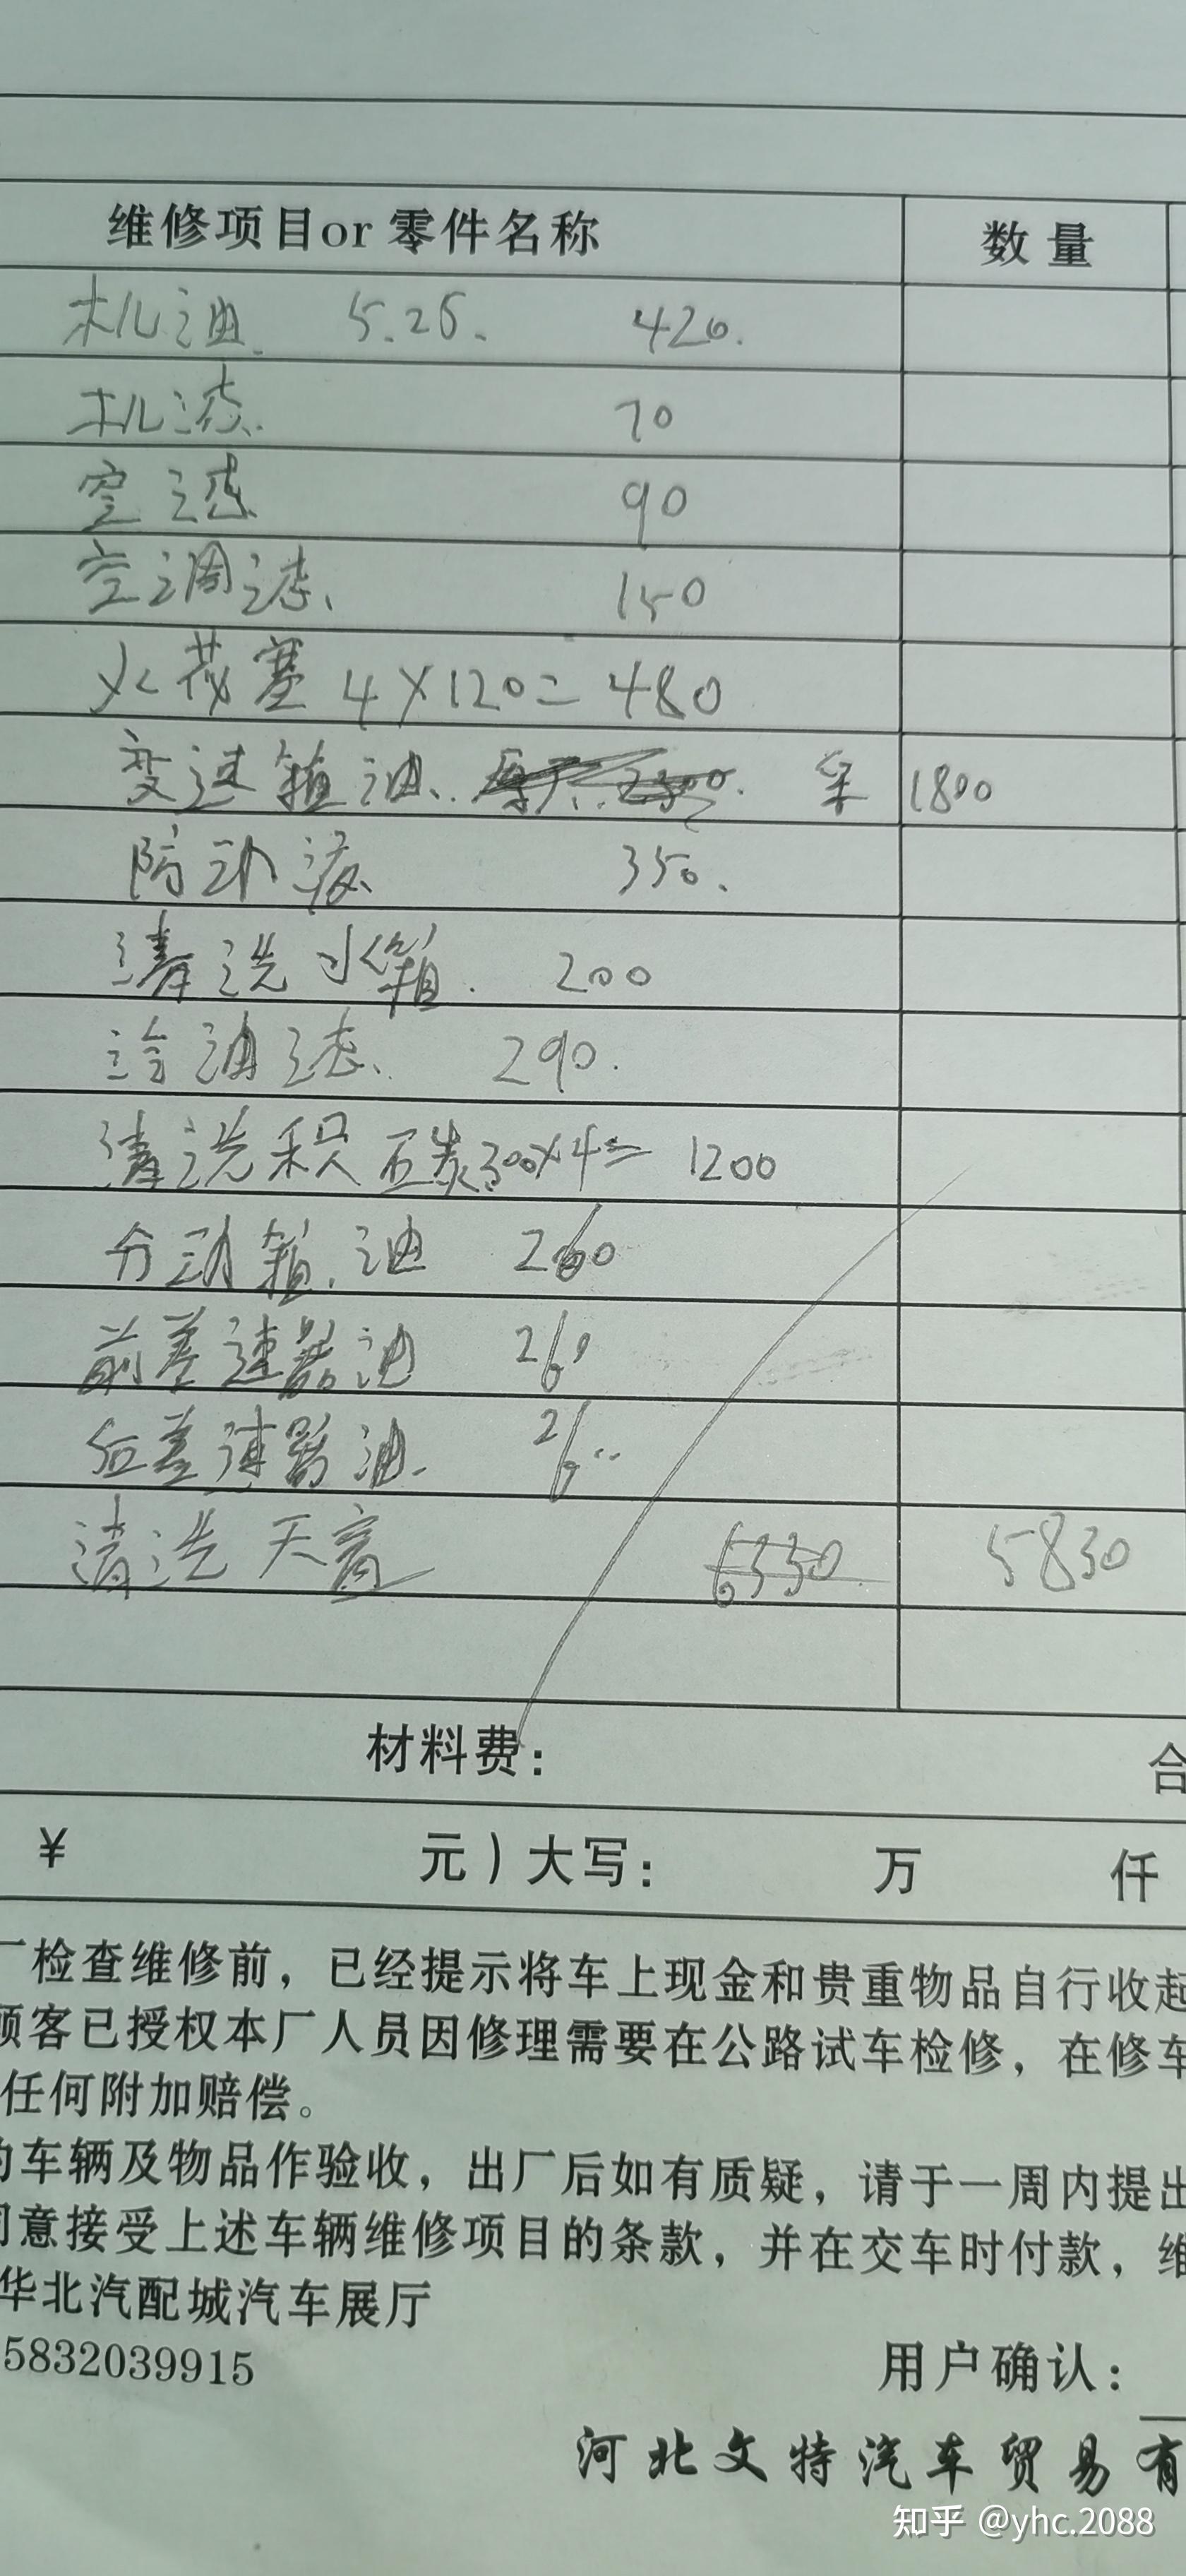 维修项目or 零件名称 数量
机油 5.25. 420.
机滤. 70
空滤 90
空调滤. 150
火花塞 4×120= 480
变速箱油. 1800
防动液 350.
清洗水箱. 200
冷油滤. 290.
清洗积石炭300×4= 1200
分动箱.油 260
前差速器油 260
后差速器油. 260
清洗天窗 6330 5830
材料费: 合
¥ 元)大写: 万 仟
厂检查维修前,已经提示将车上现金和贵重物品自行收起
顾客已授权本厂人员因修理需要在公路试车检修,在修车
任何附加赔偿。
的车辆及物品作验收,出厂后如有质疑,请于一周内提出
同意接受上述车辆维修项目的条款,并在交车时付款,维
华北汽配城汽车展厅
5832039915
用户确认:
河北文特汽车贸易有
知乎 @yhc.2088